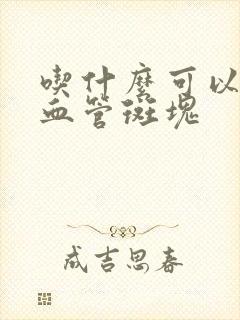 喫什麽可以
血管斑塊
成吉思春